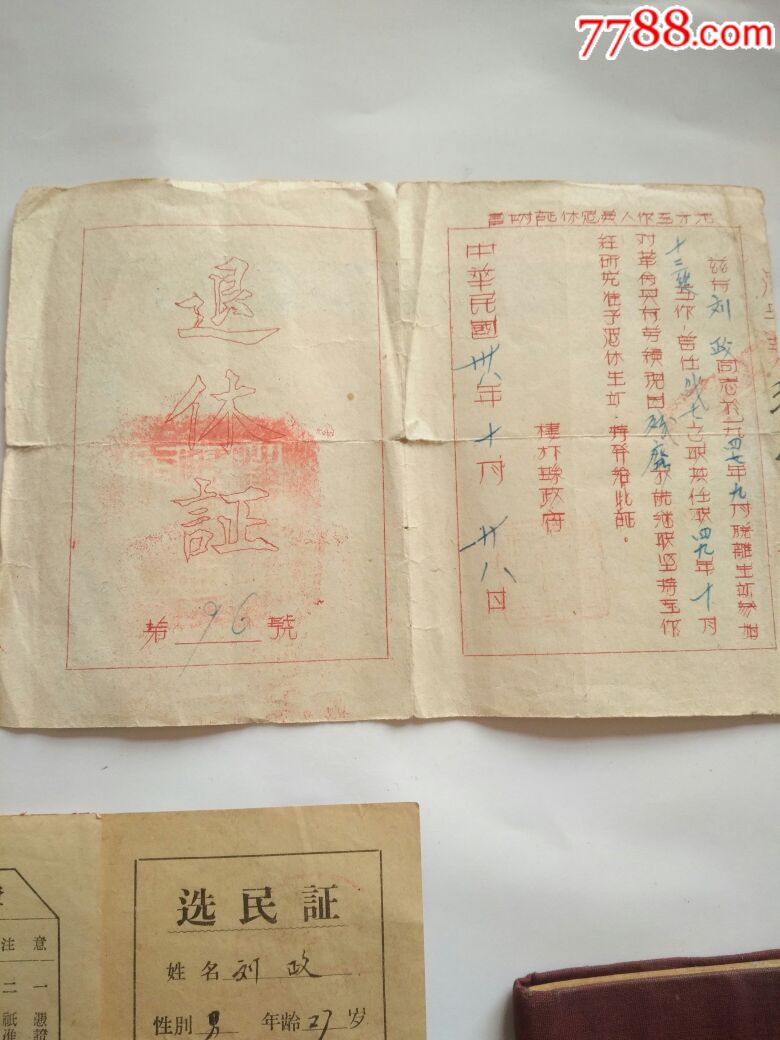 7788.com
退休証
第 96 號
地方工作人員退休証明書
茲有 刘政 同志於一九四七年九月脫離生產參加
工作,曾任 之職我任职四九年十月
对革命頗有劳績现因残廢不能继职坚持工作
經研究准予退休生產,特発給此証。
棲霞縣政府
中華民國卅八年十月廿八日
选民証
姓名 刘政
性別 男 年龄 27 岁
注意
一 憑證
二 祇准